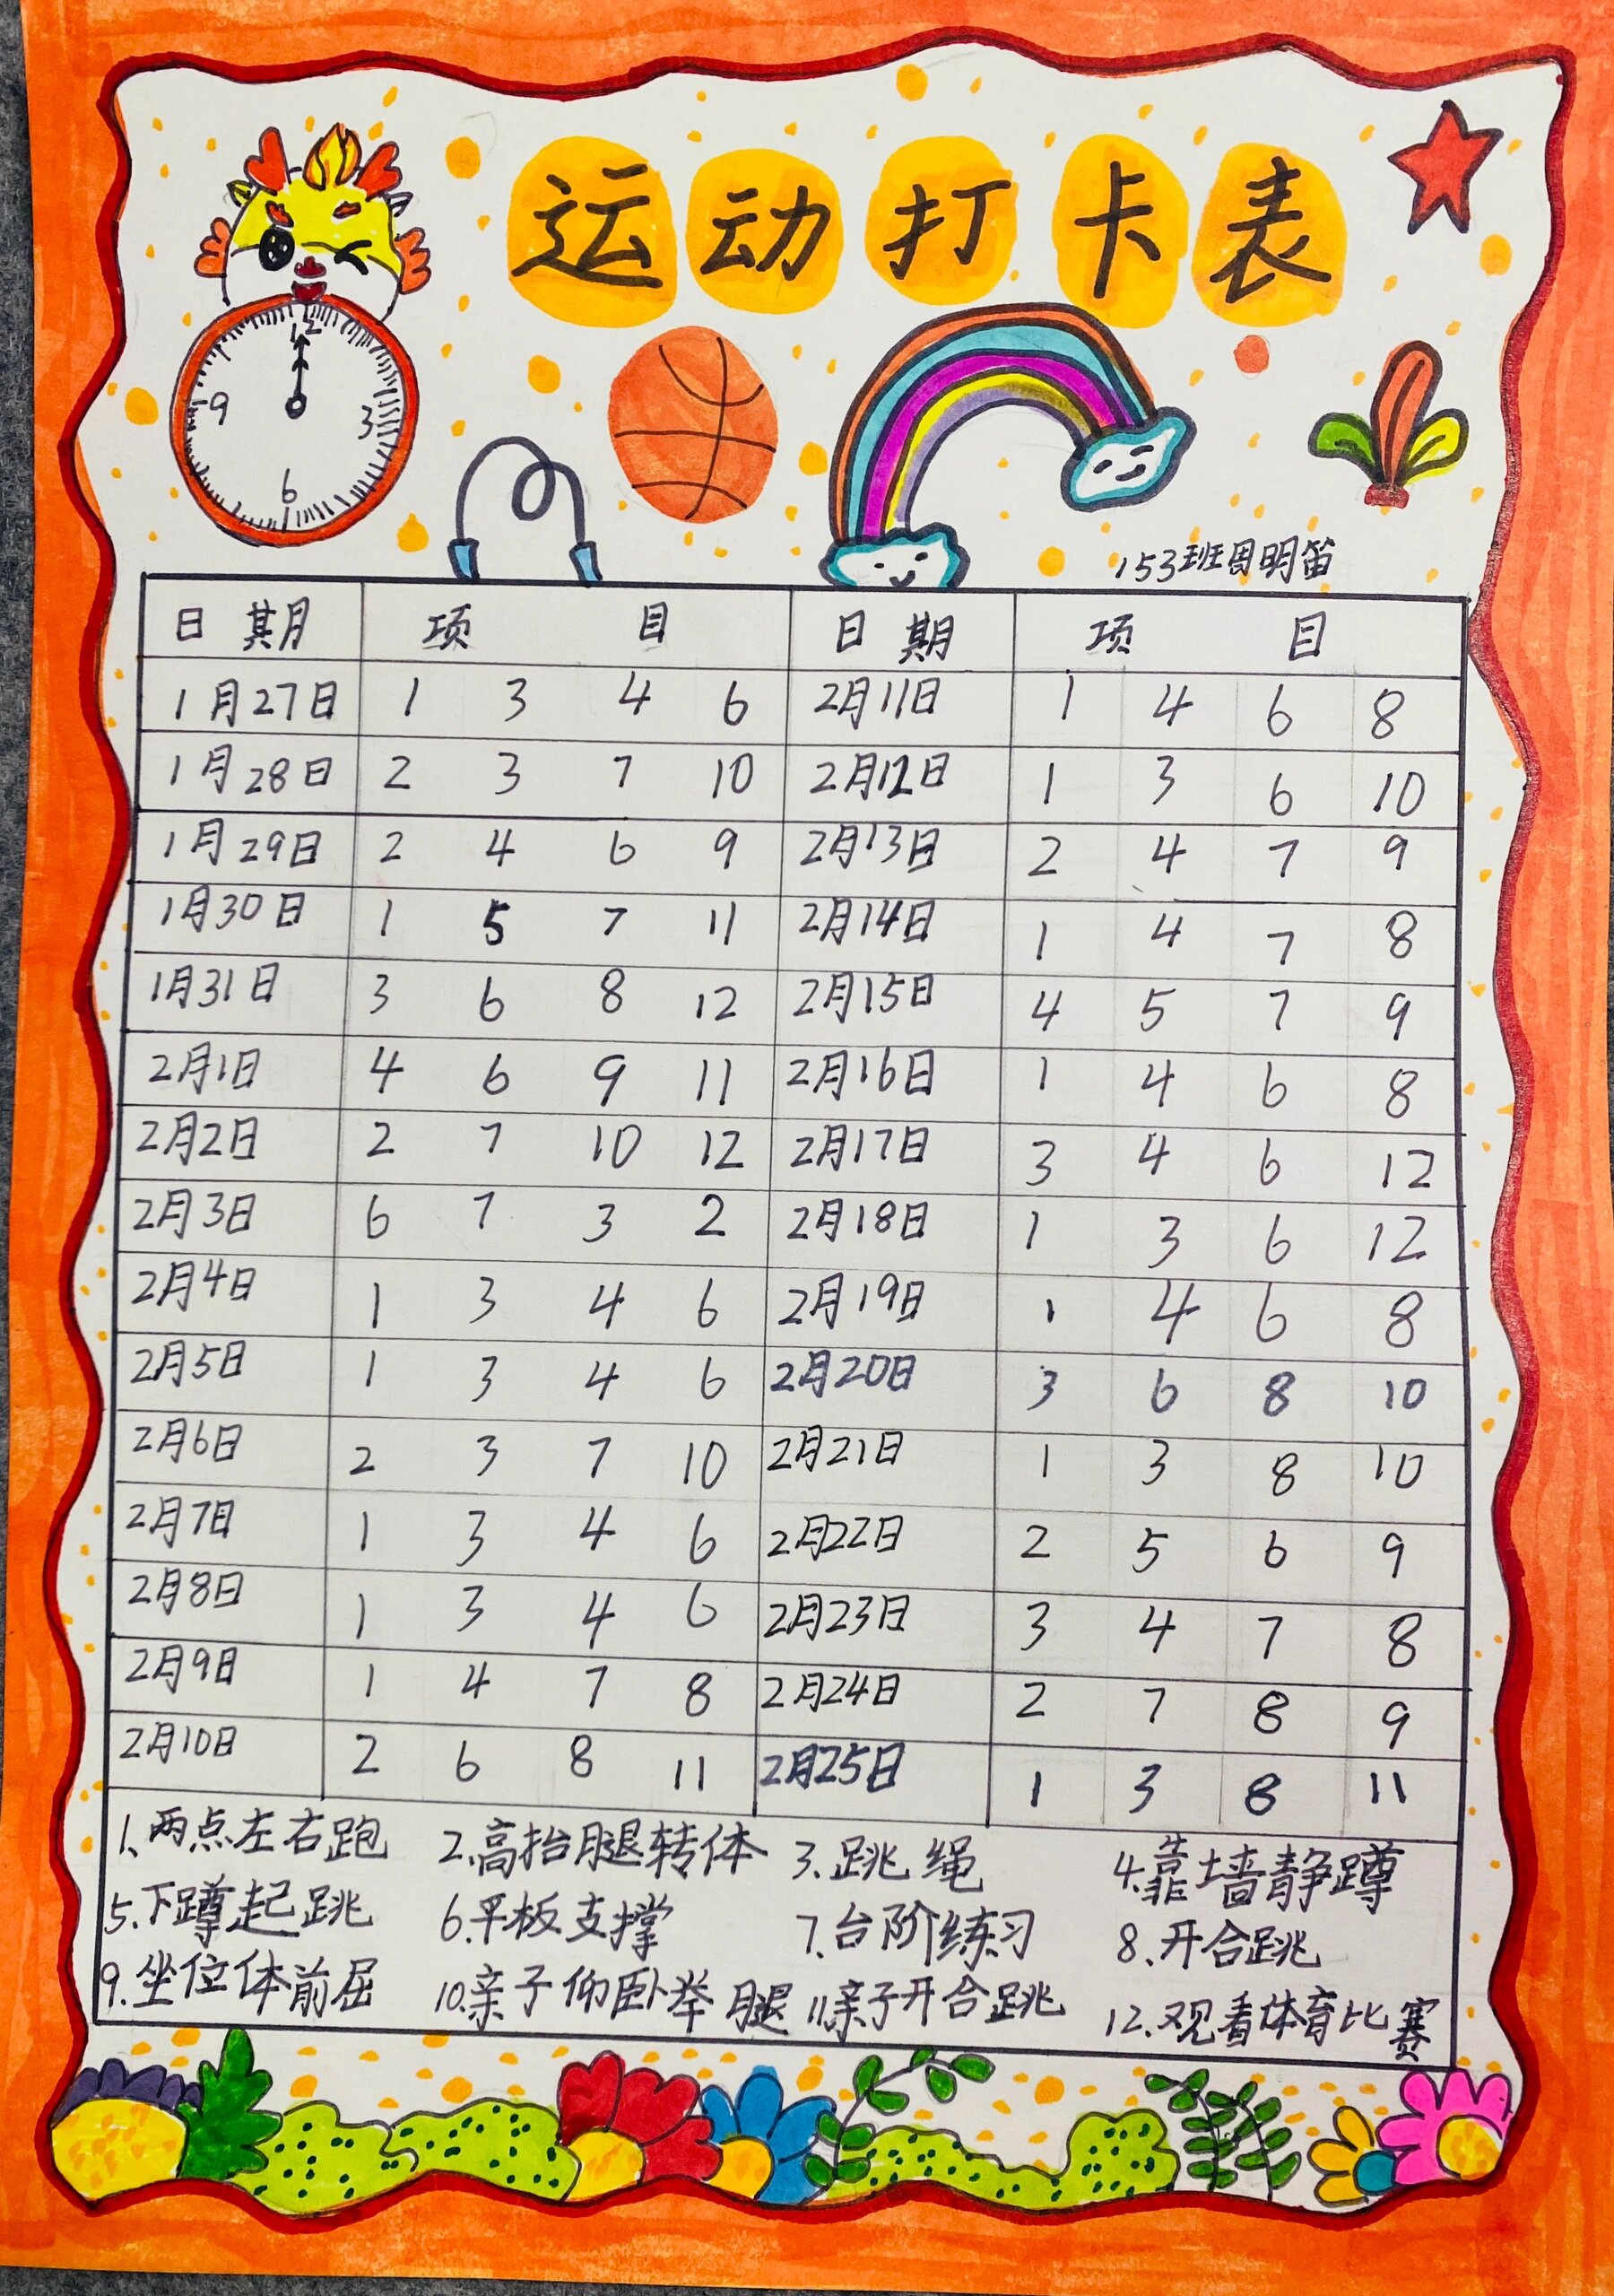 运动打卡表
12
9 3
6
153班周明笛
日期 项目 日期 项目
1月27日 1 3 4 6 2月11日 1 4 6 8
1月28日 2 3 7 10 2月12日 1 3 6 10
1月29日 2 4 6 9 2月13日 2 4 7 9
1月30日 1 5 7 11 2月14日 1 4 7 8
1月31日 3 6 8 12 2月15日 4 5 7 9
2月1日 4 6 9 11 2月16日 1 4 6 8
2月2日 2 7 10 12 2月17日 3 4 6 12
2月3日 6 7 3 2 2月18日 1 3 6 12
2月4日 1 3 4 6 2月19日 1 4 6 8
2月5日 1 3 4 6 2月20日 3 6 8 10
2月6日 2 3 7 10 2月21日 1 3 8 10
2月7日 1 3 4 6 2月22日 2 5 6 9
2月8日 1 3 4 6 2月23日 3 4 7 8
2月9日 1 4 7 8 2月24日 2 7 8 9
2月10日 2 6 8 11 2月25日 1 3 8 11
1、两点左右跑 2、高抬腿转体 3、跳绳 4、靠墙静蹲
5、下蹲起跳 6、平板支撑 7、台阶练习 8、开合跳
9、坐位体前屈 10、亲子仰卧举腿 11、亲子开合跳 12、观看体育比赛